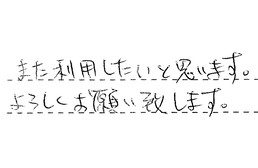 また利用したいと思います。
よろしくお願い致します。